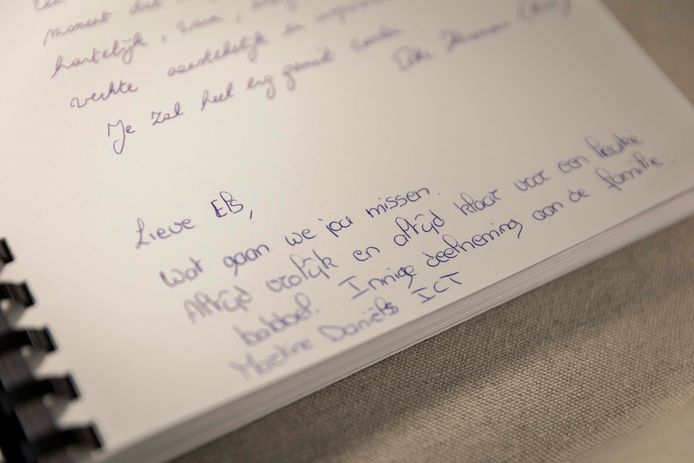 moment
hartelijk,
werkte aanstekelijk en
Je zal heel erg gemist worden
Lieve Els,
wat gaan we jou missen.
Altijd vrolijk en altijd klaar voor een leuke
babbel. Innige deelneming aan de familie.
Martine Daniëls ICT